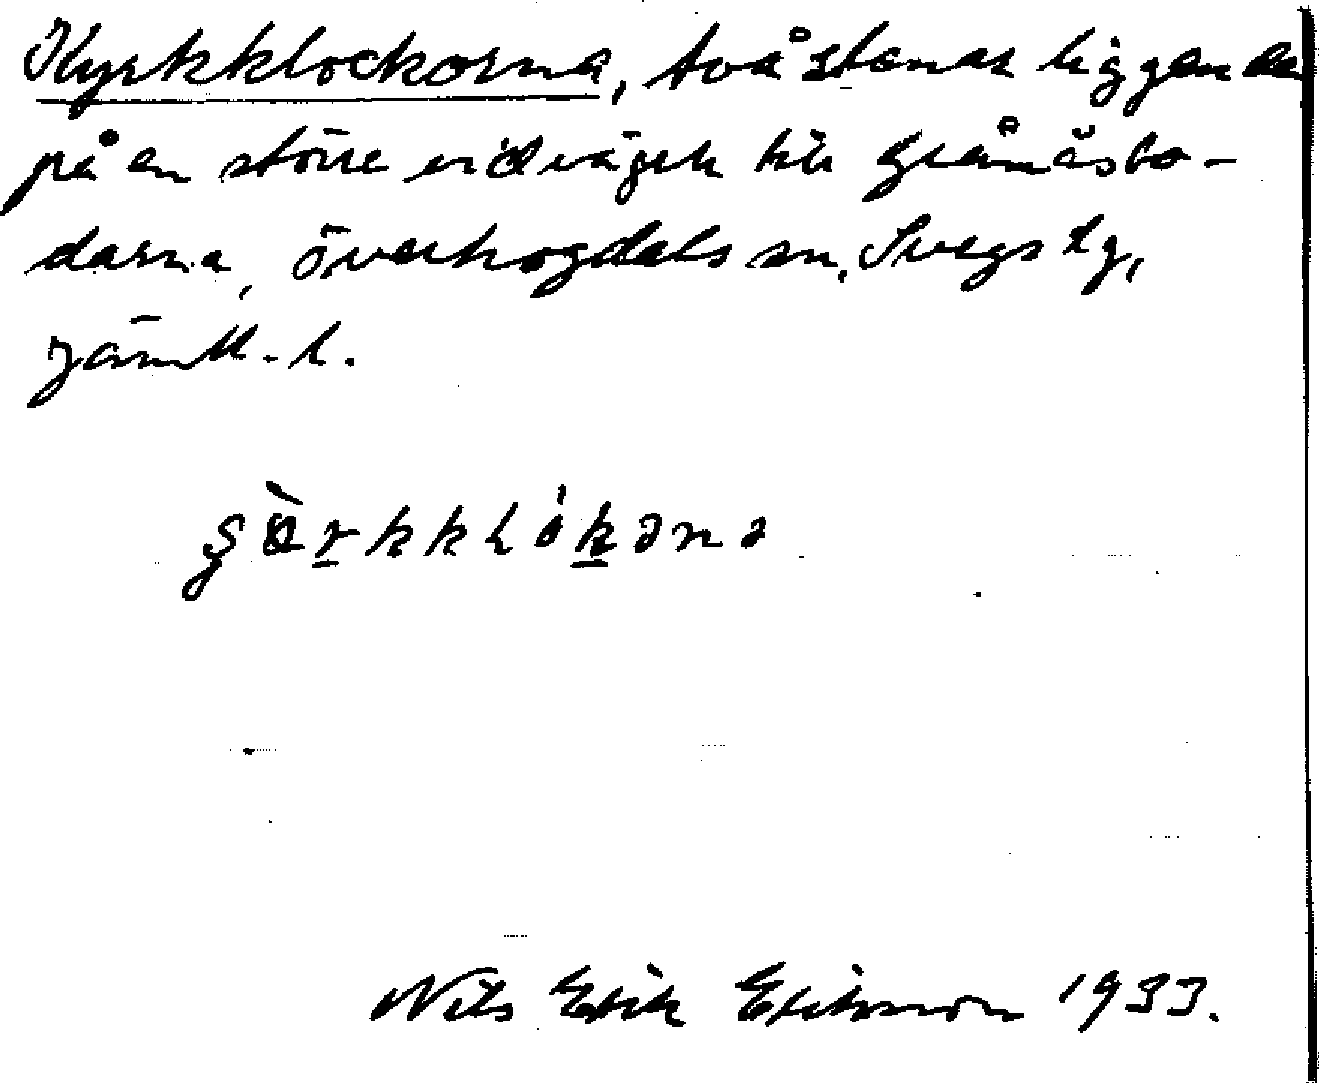 Kyrkklockorna, två stenar liggande
på en större vid vägen till Grånäsbo-
darna, Överhogdals sn, Svegs tg,
Jämtl. l.
Nils Erik Eriksson 1933.